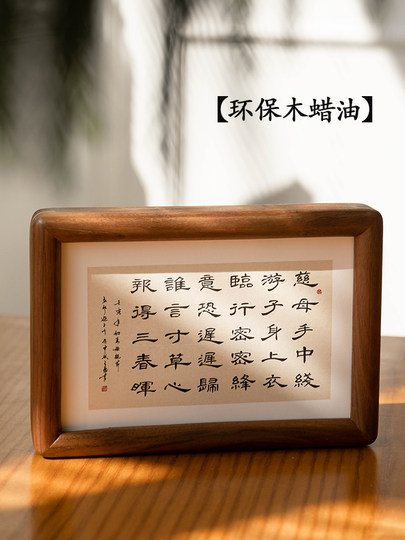 【环保木蜡油】
慈母手中綫
游子身上衣
臨行密密縫
意恐遲遲歸
誰言寸草心
報得三春暉